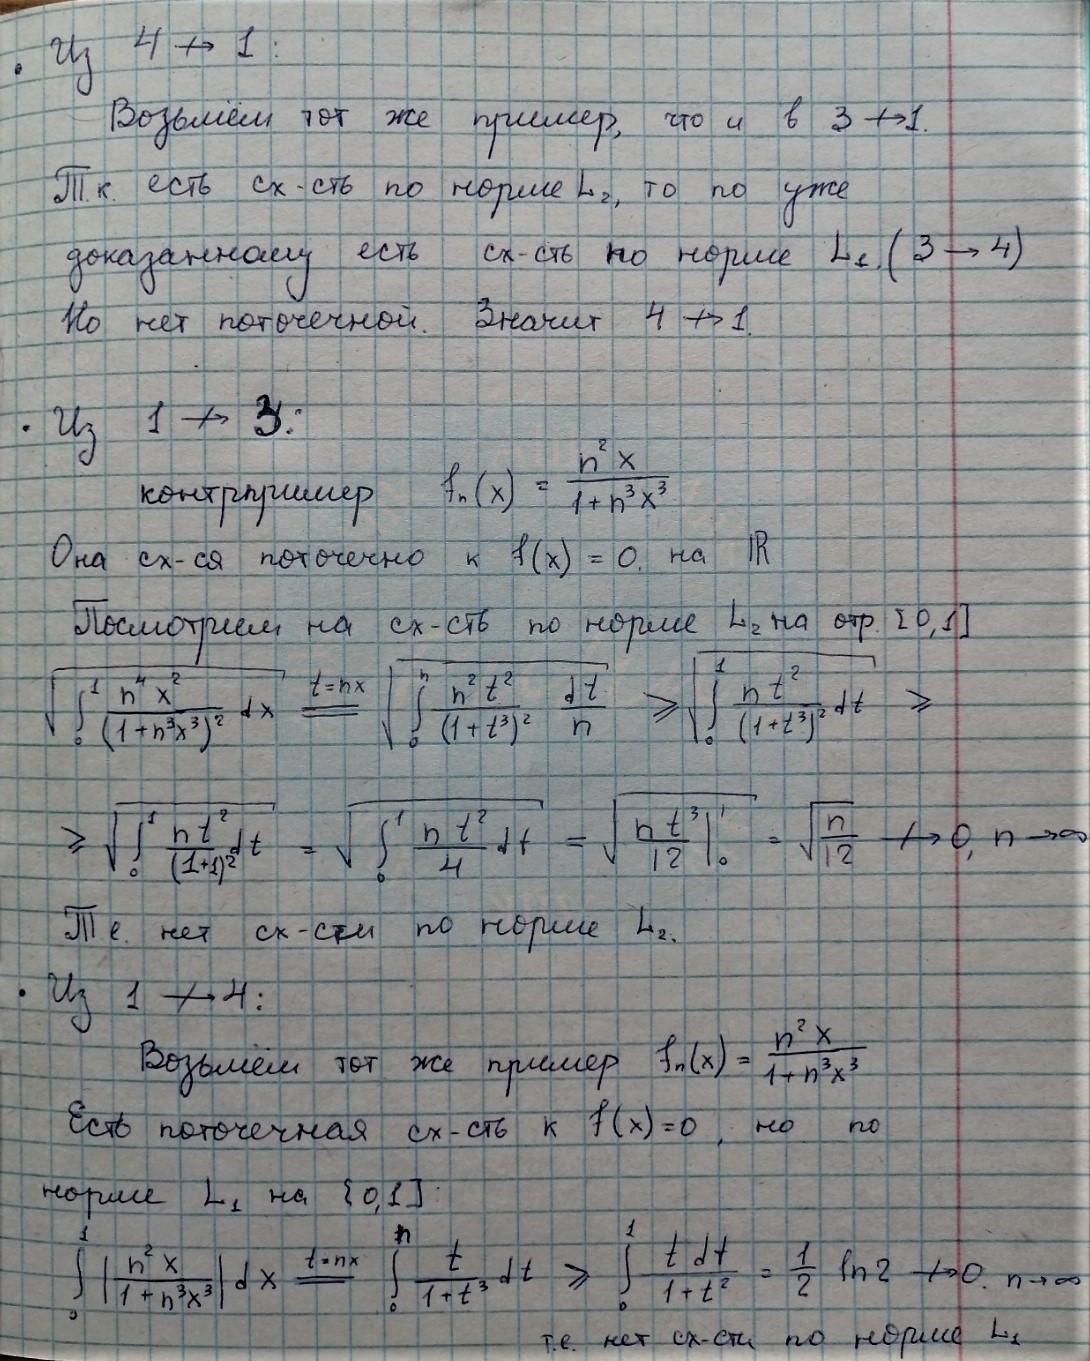 • Из 4 ↛ 1:
Возьмём тот же пример, что и в 3 ↛ 1.
Т.к. есть сх-сть по норме L₂, то по уже
доказанному есть сх-сть по норме L₁. (3 → 4)
Но нет поточечной. Значит 4 ↛ 1.
• Из 1 ↛ 3:
контрпример fₙ(x) = n²x / (1+n³x³)
Она сх-ся поточечно к f(x) = 0. на ℝ
Посмотрим на сх-сть по норме L₂ на отр. [0,1]
√(∫₀¹ n⁴x²/(1+n³x³)² dx) =(t=nx)= √(∫₀ⁿ n²t²/(1+t³)² dt/n) ⩾ √(∫₀¹ nt²/(1+t³)² dt) ⩾
⩾ √(∫₀¹ nt²/(1+1)² dt) = √(∫₀¹ nt²/4 dt) = √(nt³/12 |₀¹) = √(n/12) ↛ 0, n → ∞
Т.е. нет сх-сти по норме L₂.
• Из 1 ↛ 4:
Возьмём тот же пример fₙ(x) = n²x / (1+n³x³)
Есть поточечная сх-сть к f(x)=0, но по
норме L₁ на [0,1]:
∫₀¹ |n²x/(1+n³x³)| dx =(t=nx)= ∫₀ⁿ t/(1+t³) dt ⩾ ∫₀¹ t dt/(1+t²) = 1/2 ln2 ↛ 0. n → ∞
т.е. нет сх-сти по норме L₁